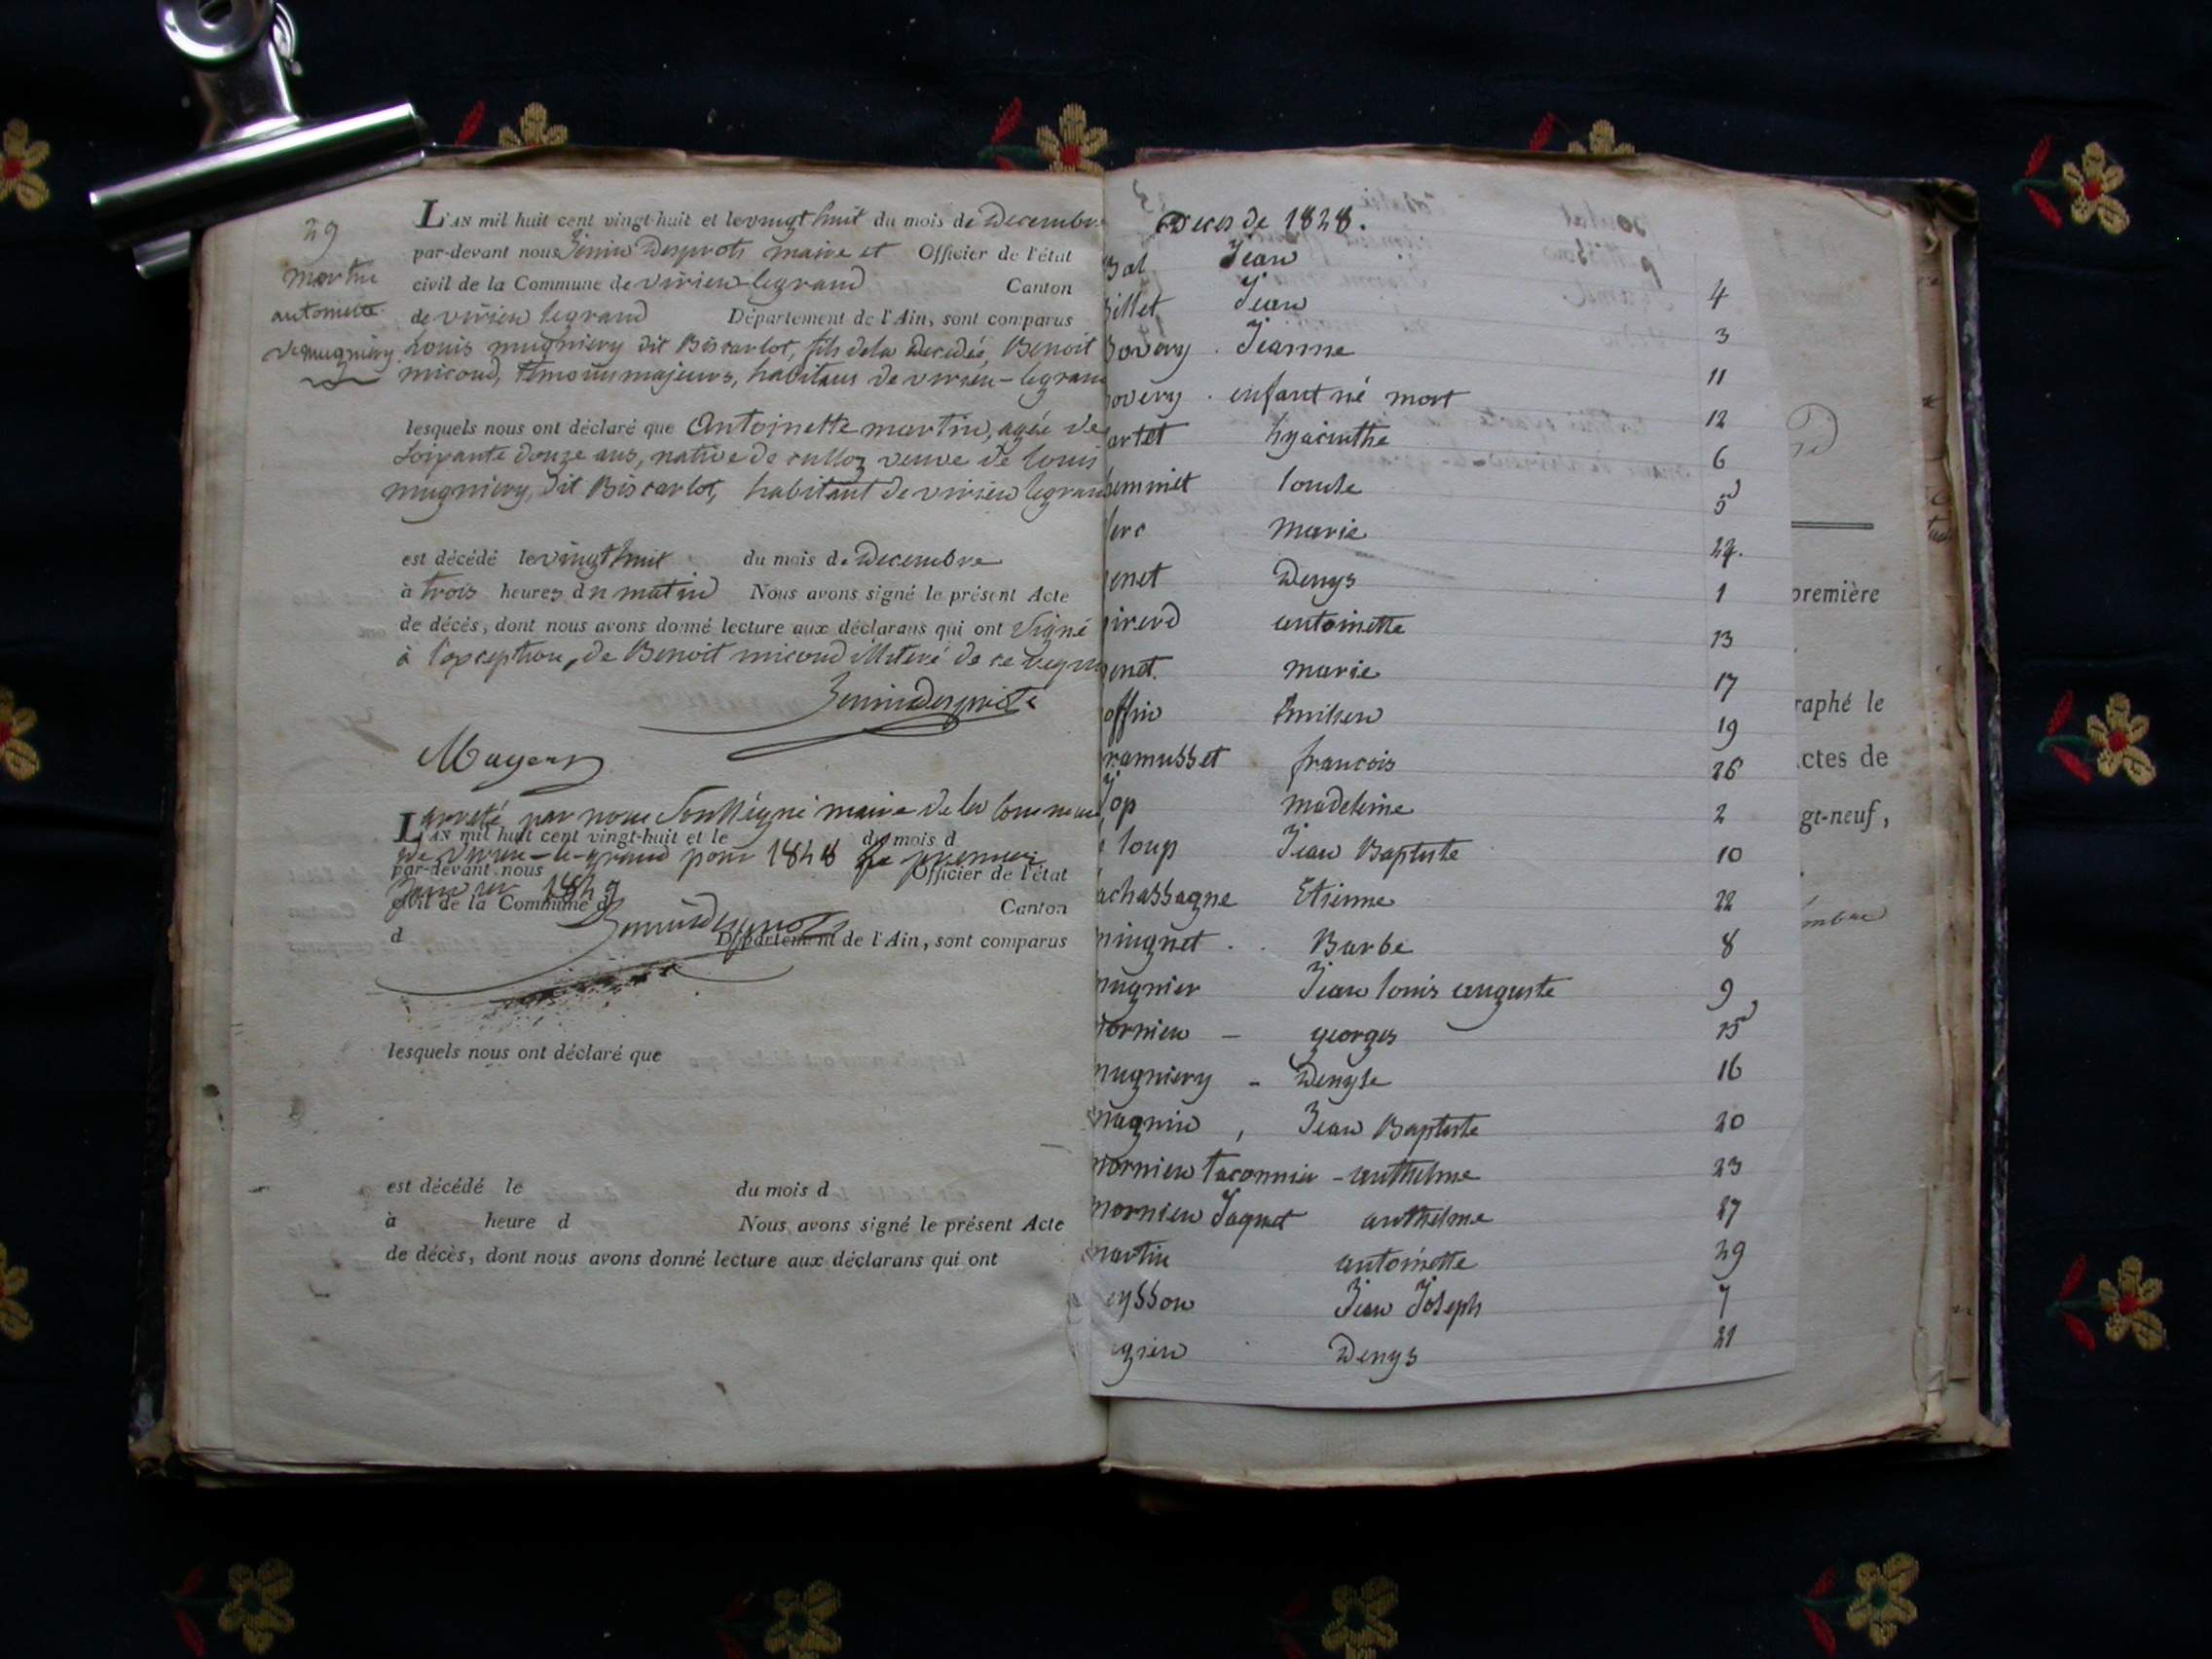 29
martin
antoinette
ve mugniery
L'AN mil huit cent vingt-huit et le vingt huit du mois de Decembre
par-devant nous Jenin Desprots maire et Officier de l'état
civil de la Commune de virieu legrand Canton
de virieu legrand Département de l'Ain, sont comparus
Louis mugniery dit Biscarlot, fils de la Decedée, Benoit
micoud, témoins majeurs, habitans de virieu-legrand
lesquels nous ont déclaré que Antoinette martin, agée de
soixante douze ans, native de culloz veuve de louis
mugniery, dit Biscarlot, habitant de virieu legrand
est décédé le vingt huit du mois de Decembre
à trois heures du matin Nous avons signé le présent Acte
de décès, dont nous avons donné lecture aux déclarans qui ont signé
à l'exception de Benoit micoud illiteré de ce
Jenin Desprots
arreté par nous soussigné maire de la commune
L'AN mil huit cent vingt-huit et le du mois d
de virieu-le-grand pour 1828 le premier
par-devant nous Officier de l'état
janvier 1829
civil de la Commune d Canton
Jenin Desprots
d Département de l'Ain, sont comparus
lesquels nous ont déclaré que
est décédé le du mois d
à heure d Nous avons signé le présent Acte
de décès, dont nous avons donné lecture aux déclarans qui ont
Deces de 1828.
Bal Jean 4
billet Jean 3
bovery . Jeanne 11
overy . enfant né mort 12
artet hyacinthe 6
emmet louise 5
lerc marie 24.
enet Denys 1
irerd antoinette 13
enet. marie 17
offin Emilien 19
ramusset francois 26
Jop madeleine 2
loup Jean Baptiste 10
achassagne Etienne 22
minguet . . Barbe 8
mugnier Jean louis auguste 9
mornieu - georges 15
mugniery - Denyse 16
magnin , Jean Baptiste 20
mornieu taconnier - anthelme 23
mornieu Jaquet anthelme 27
martin antoinette 29
eysson Jean Joseph 7
gieu Denys 21
première
raphé le
ctes de
gt-neuf,